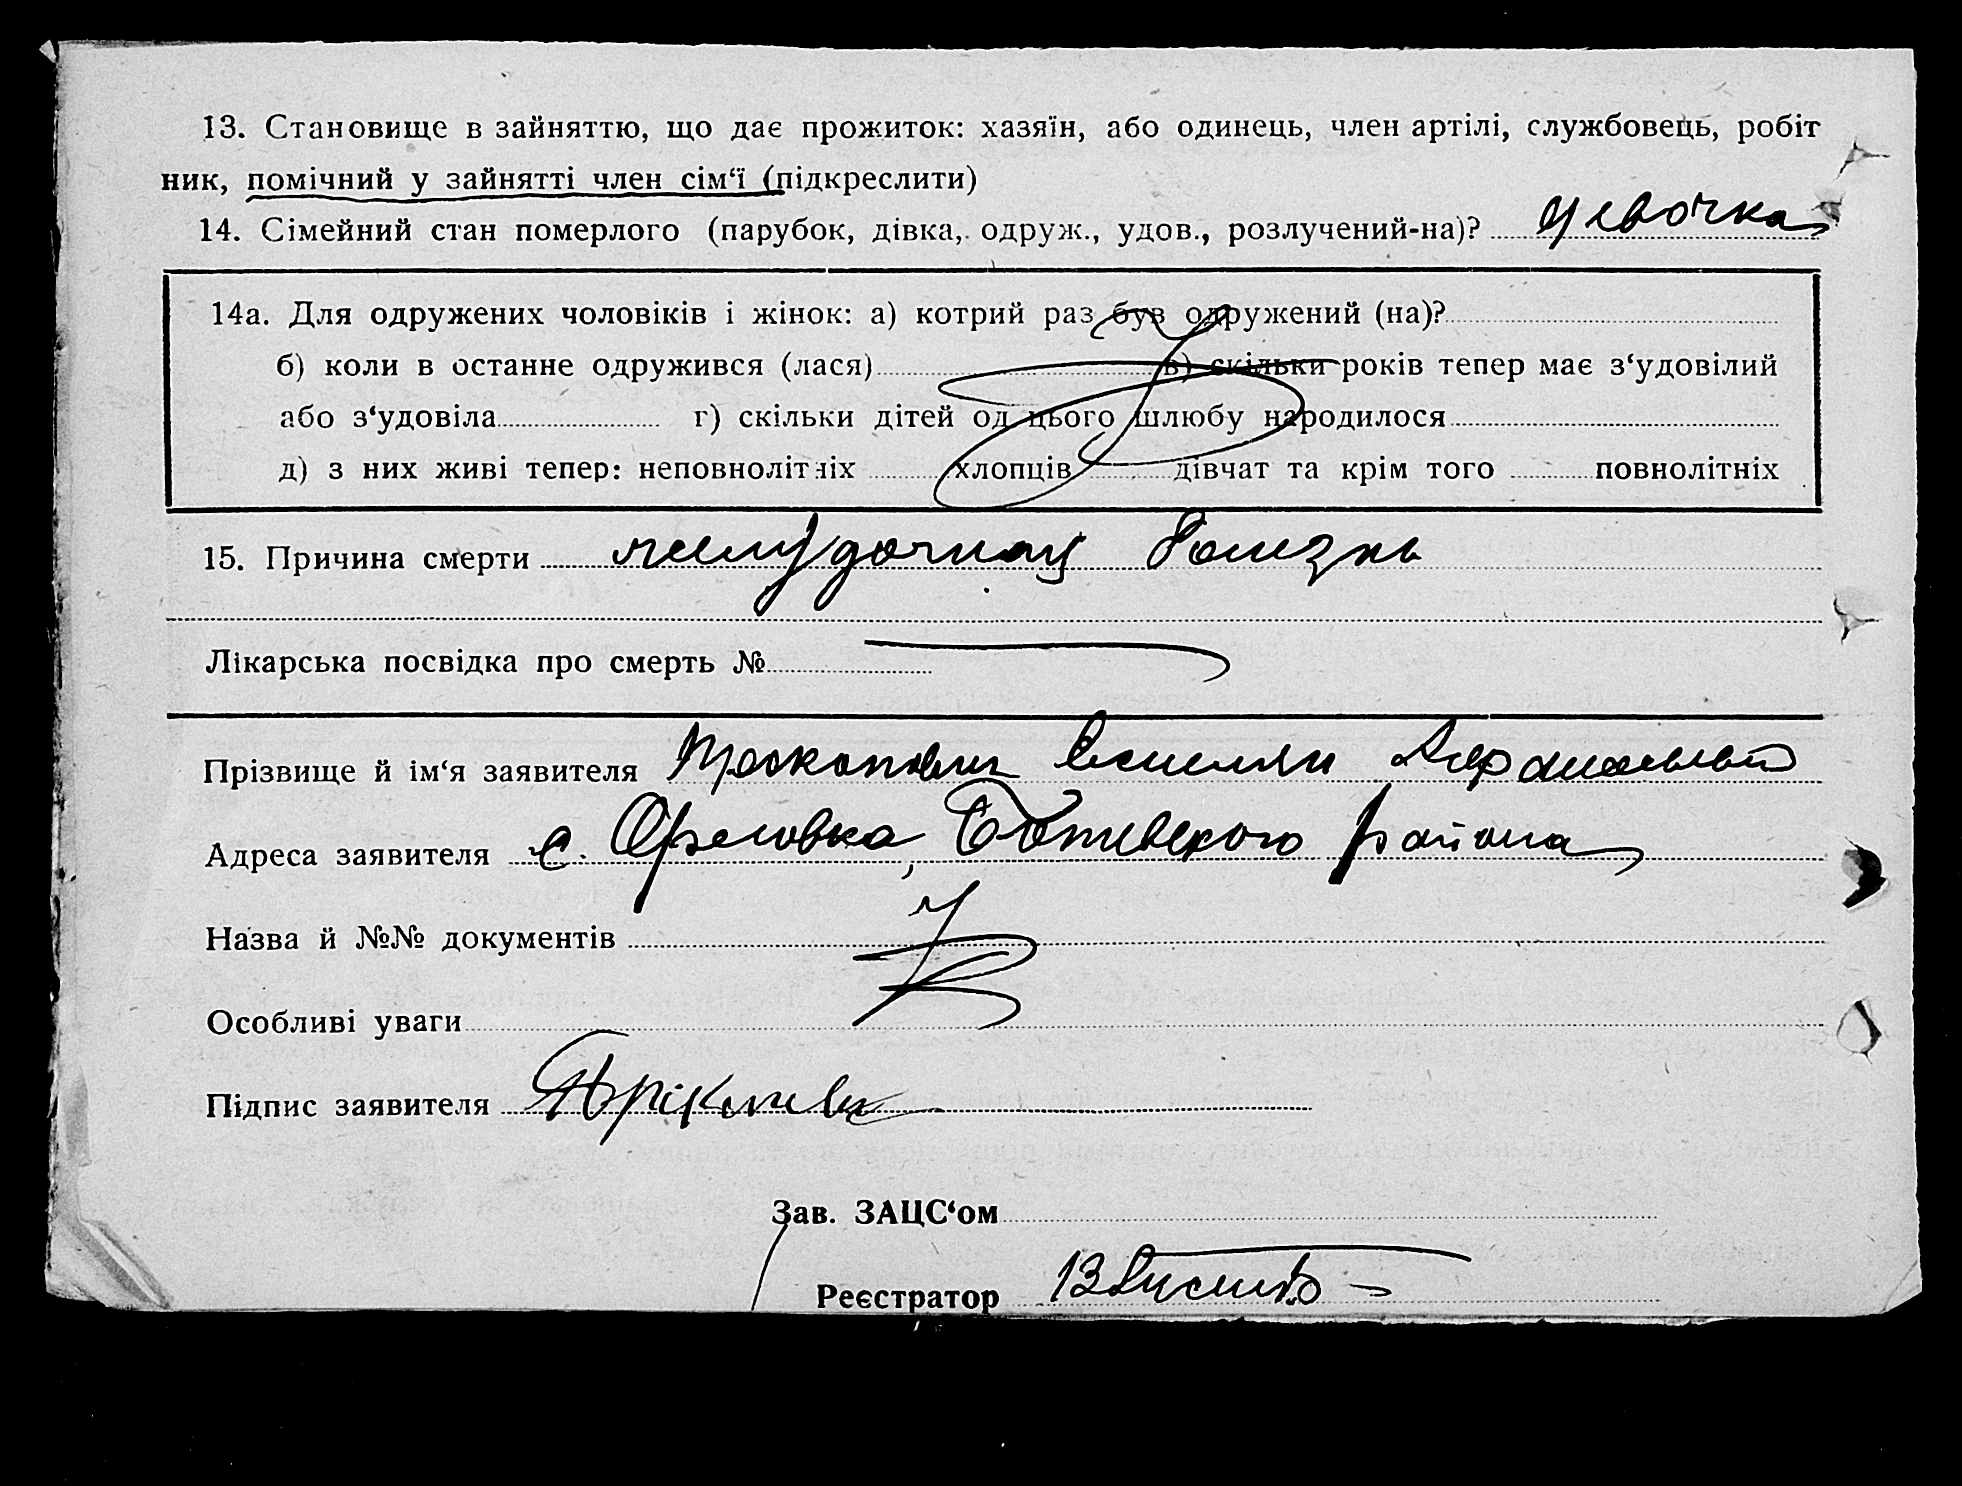 13. Становище в зайняттю, що дає прожиток: хазяїн, або одинець, член артілі, службовець, робіт
ник, помічний у зайнятті член сім‘ї (підкреслити)
14. Сімейний стан померлого (парубок, дівка, одруж., удов., розлучений-на)? девочка
14а. Для одружених чоловіків і жінок: а) котрий раз був одружений (на)?
б) коли в останне одружився (лася) в) скільки років тепер має з‘удовілий
або з‘удовіла г) скільки дітей од цього шлюбу народилося
д) з них живі тепер: неповнолітніх хлопців дівчат та крім того повнолітніх
15. Причина смерти желудочная болезнь
Лікарська посвідка про смерть №
Прізвище й ім‘я заявителя
Адреса заявителя с. Орловка, Ботиевского района
Назва й №№ документів
Особливі уваги
Підпис заявителя
Зав. ЗАЦС‘ом
Реєстратор